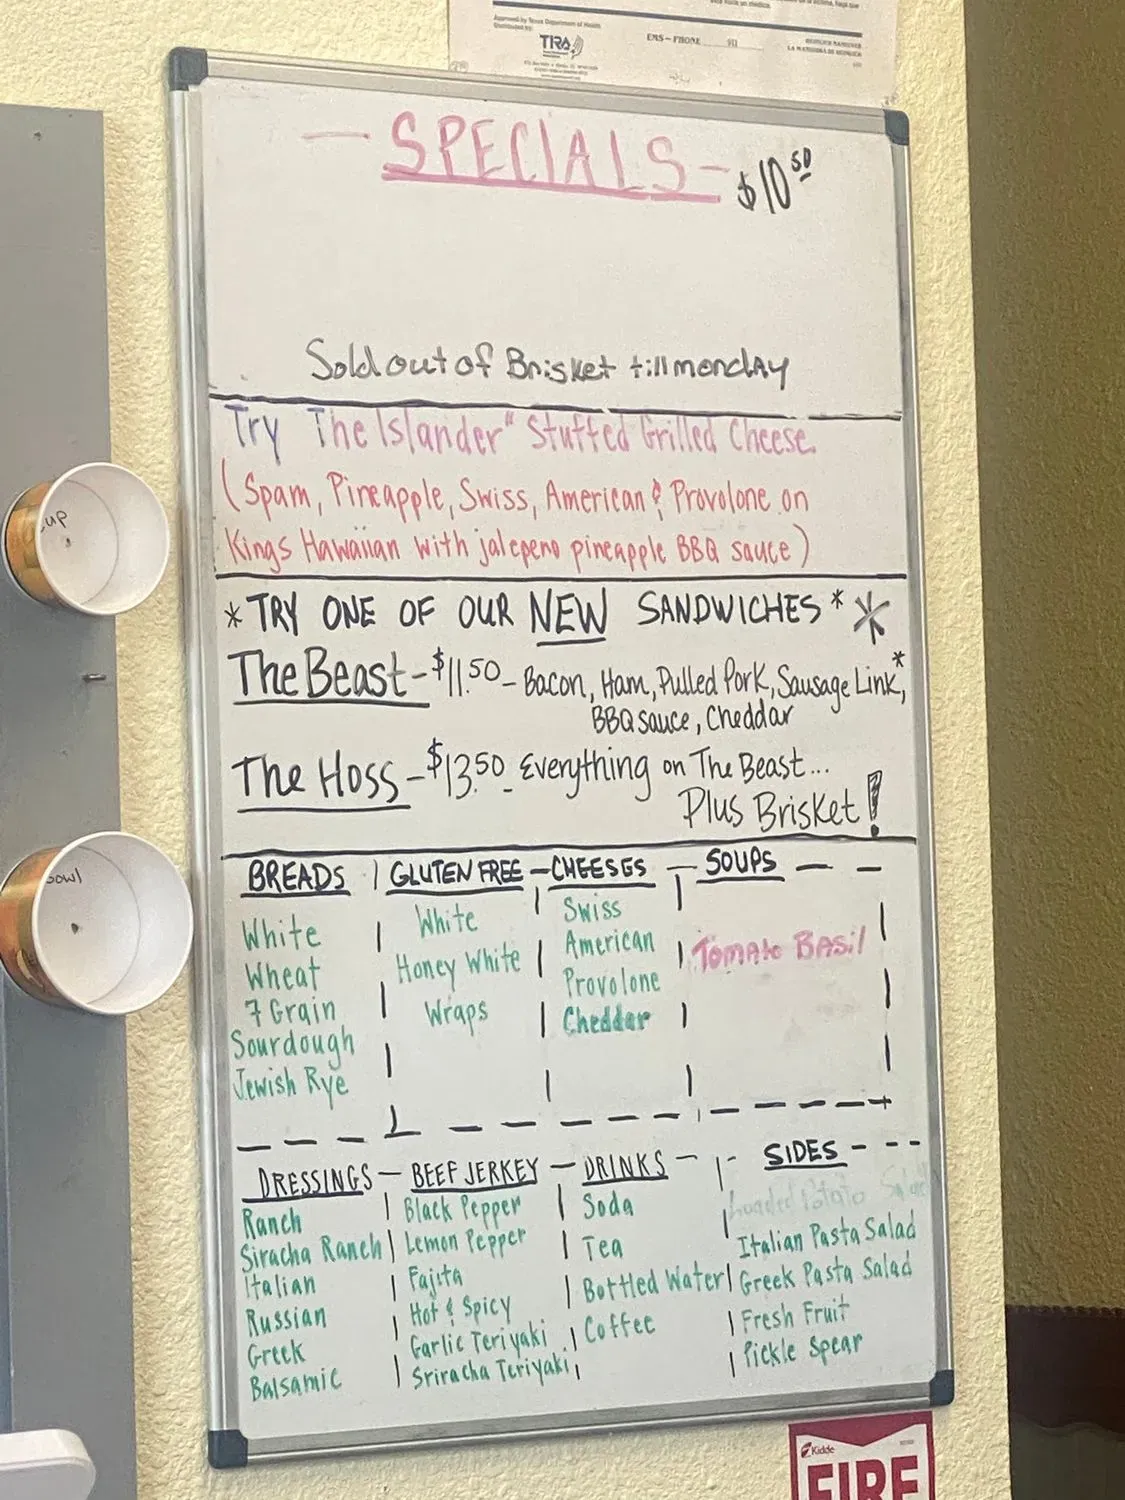 Approved by Texas Department of Health
Distributed by:
TIRA
EMS - PHONE 911
— SPECIALS — $10 50
Sold out of Brisket till monday
Try The Islander" Stuffed Grilled Cheese.
(Spam, Pineapple, Swiss, American & Provolone on
Kings Hawaiian with jalepeno pineapple BBQ sauce)
*TRY ONE OF OUR NEW SANDWICHES* *
The Beast - $11.50 - Bacon, Ham, Pulled Pork, Sausage Link,*
BBQ sauce, Cheddar
The Hoss - $13.50 - Everything on The Beast...
Plus Brisket!
BREADS
White
Wheat
7 Grain
Sourdough
Jewish Rye
GLUTEN FREE
White
Honey White
Wraps
CHEESES
Swiss
American
Provolone
Cheddar
SOUPS
Tomato BASil
DRESSINGS
Ranch
Siracha Ranch
Italian
Russian
Greek
Balsamic
BEEF JERKEY
Black Pepper
Lemon Pepper
Fajita
Hot & Spicy
Garlic Teriyaki
Sriracha Teriyaki
DRINKS
Soda
Tea
Bottled Water
Coffee
SIDES
Loaded Potato Salad
Italian Pasta Salad
Greek Pasta Salad
Fresh Fruit
Pickle Spear
cup
bowl
Kidde
FIRE